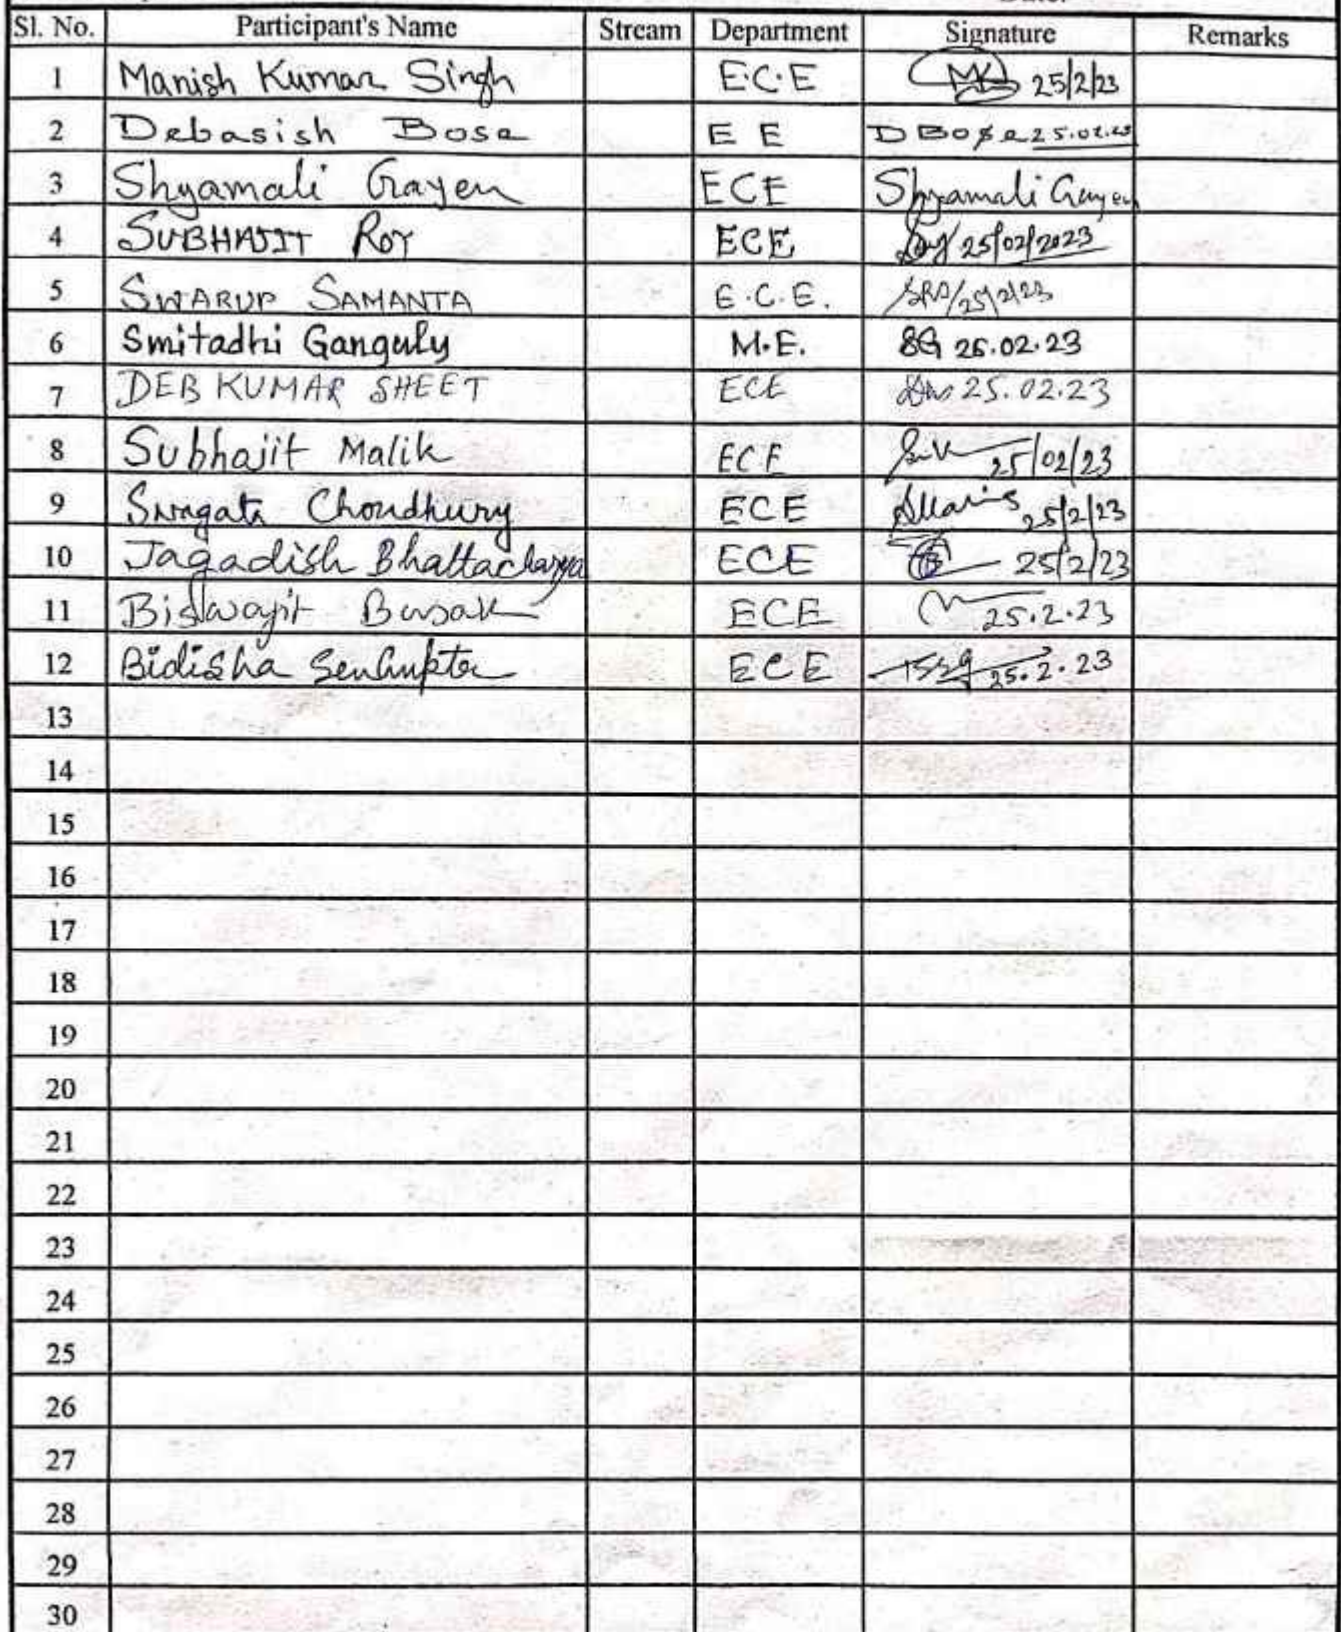 Sl. No. Participant's Name Stream Department Signature Remarks
1 Manish Kumar Singh E.C.E 25/2/23
2 Debasish Bose E E D Bose 25.02.23
3 Shyamali Gayen ECE Shyamali Gayen
4 SUBHAJIT ROY ECE Roy 25/02/2023
5 SWARUP SAMANTA E.C.E. 25/2/23
6 Smitadhi Ganguly M.E. SG 25.02.23
7 DEB KUMAR SHEET ECE 25.02.23
8 Subhajit Malik ECE 25/02/23
9 Swagata Choudhury ECE 25/2/23
10 Jagadish Bhattacharya ECE 25/2/23
11 Biswajit Basak ECE 25.2.23
12 Bidisha SenGupta ECE 25.2.23
13
14
15
16
17
18
19
20
21
22
23
24
25
26
27
28
29
30